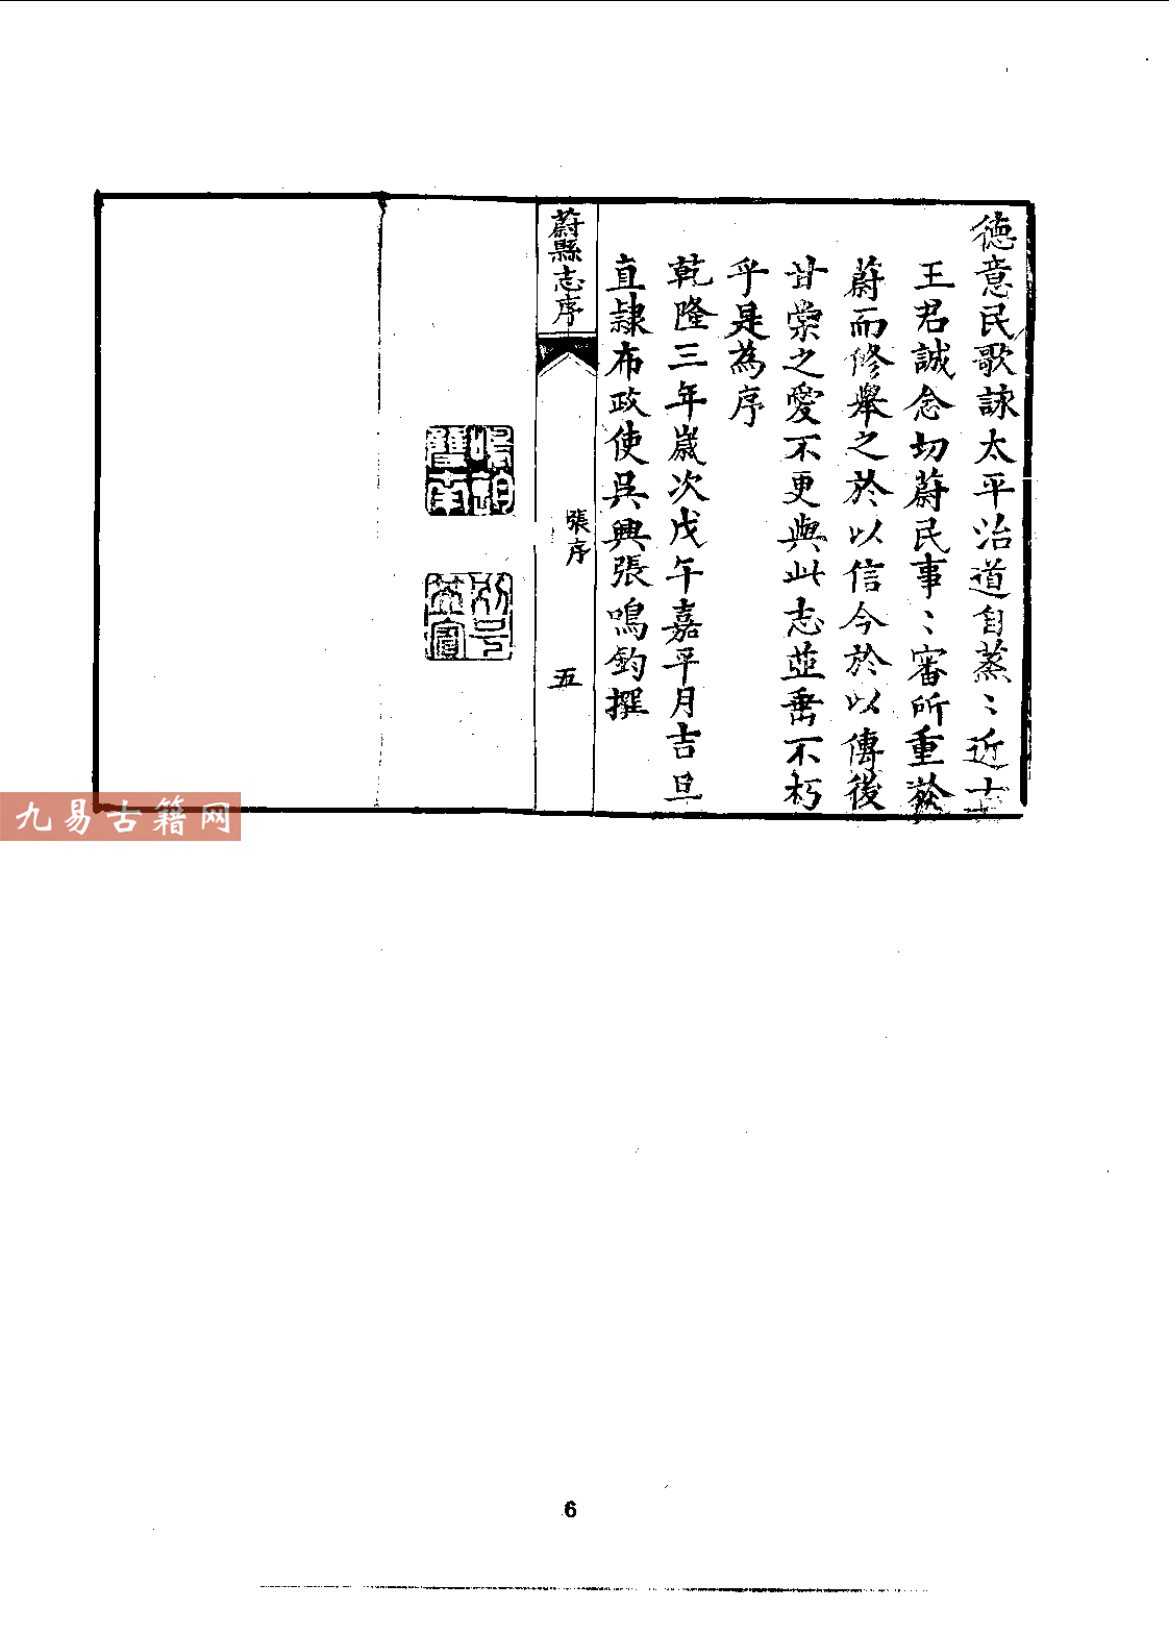 德意民歌詠太平治道自蒸〻近古
王君誠念切蔚民事〻審所重於
蔚而修舉之於以信今於以傳後
甘棠之愛不更與此志並垂不朽
乎是為序
乾隆三年歲次戊午嘉平月吉旦
直隸布政使吳興張鳴鈞撰
蔚縣志序
張序
五
九易古籍网
6